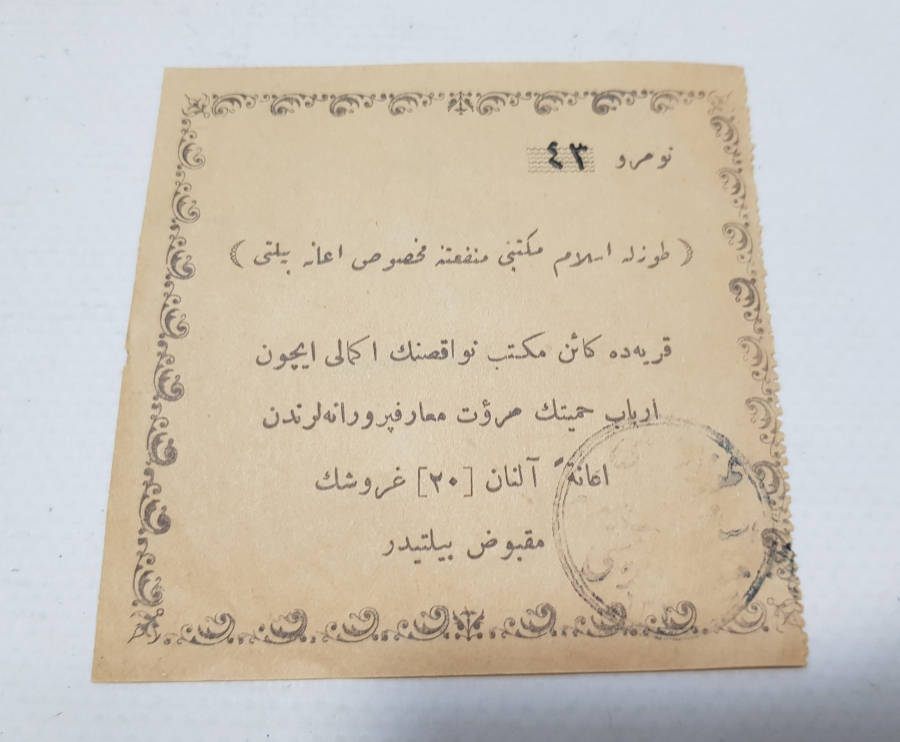 نومرو ٤٣
(طوزله اسلام مكتبنی منفعتنه مخصوص اعانه بیلتی)
قریه‌ده كائن مكتب نواقصنك اكمالی ایچون
ارباب حمیتك مرؤت معارفپرورانه‌لرندن
اعانةً آلنان [٢٠] غروشك
مقبوض بیلتیدر